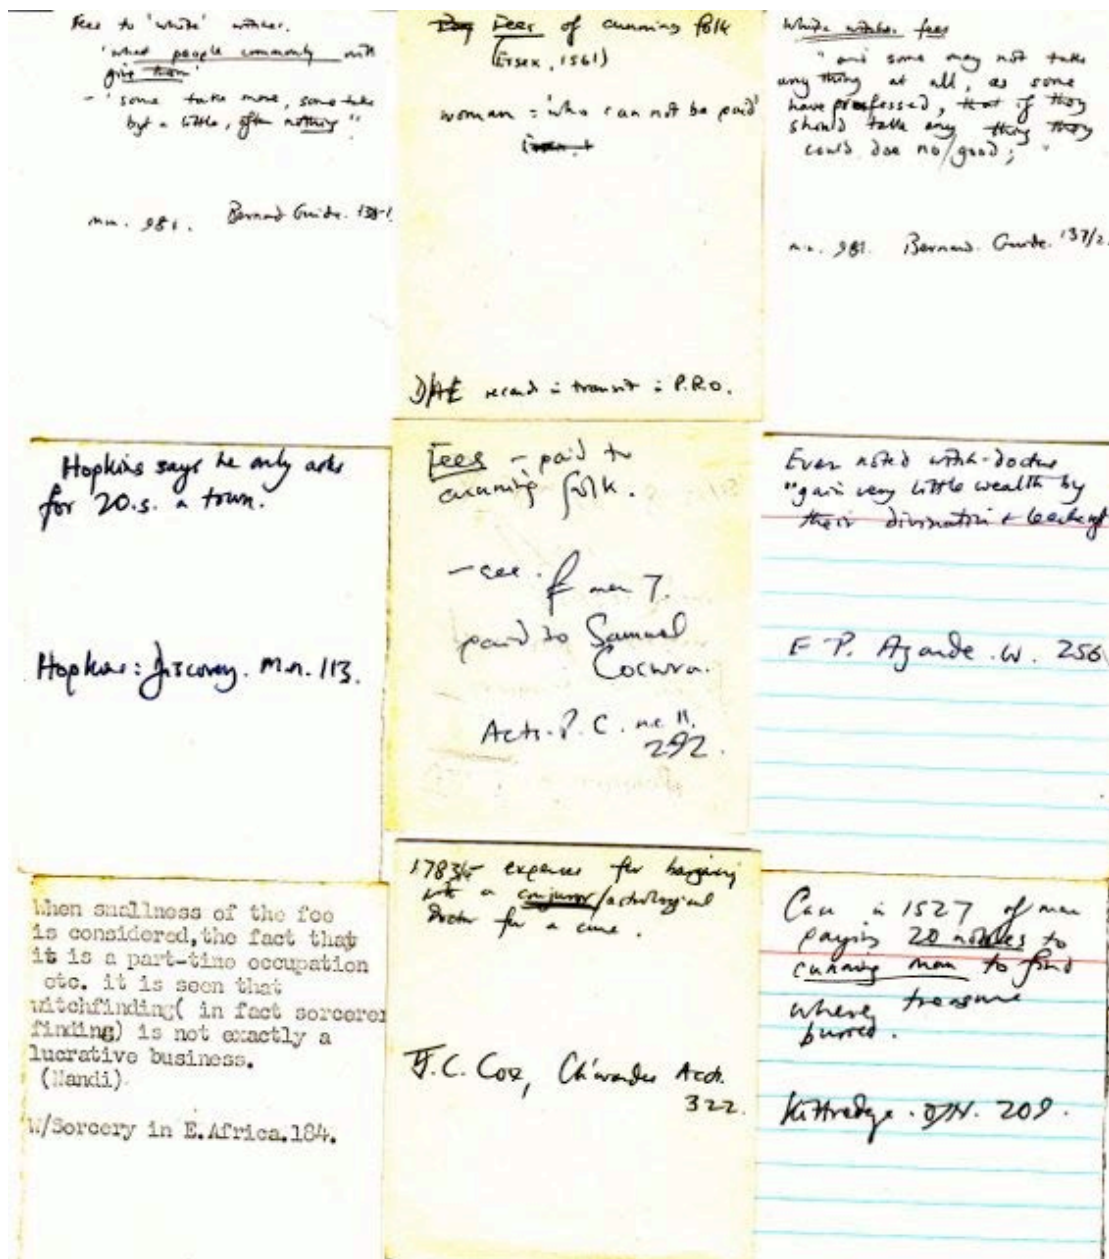 Fees to 'white' witches.
'what people commonly will
give them'
- 'some take more, some take
but a little, often nothing'
m.n. 981. Bernard Guide. 138-1
Fees of cunning folk
(Essex, 1561)
woman = 'who can not be paid'
D/AE record in transit in P.R.O.
White witches fees
"and some may not take
any thing at all, as some
have professed, that if they
should take any thing they
could doe no good;"
m.n. 981. Bernard. Guide. 137/2
Hopkins says he only asks
for 20.s. a town.
Hopkins: Discovery. m.n. 113.
Fees - paid to
cunning folk.
- see.
paid to Samuel
Cocwra.
Acts. P. C. n.e. 11.
292.
Even noted witch-doctors
"gain very little wealth by
their divination + leechcraft
E-P. Azande. W. 256
When smallness of the fee
is considered, the fact that
it is a part-time occupation
etc. it is seen that
witchfinding( in fact sorcerer
finding) is not exactly a
lucrative business.
(Nandi)
W/Sorcery in E.Africa.184.
1783/5 expenses for bargaining
with a conjuror/astrological
doctor for a cure.
J.C. Cox, Chwardes Accts.
322.
Case in 1527 of man
paying 20 nobles to
cunning man to find
where treasure
burred.
Kittredge. 209.